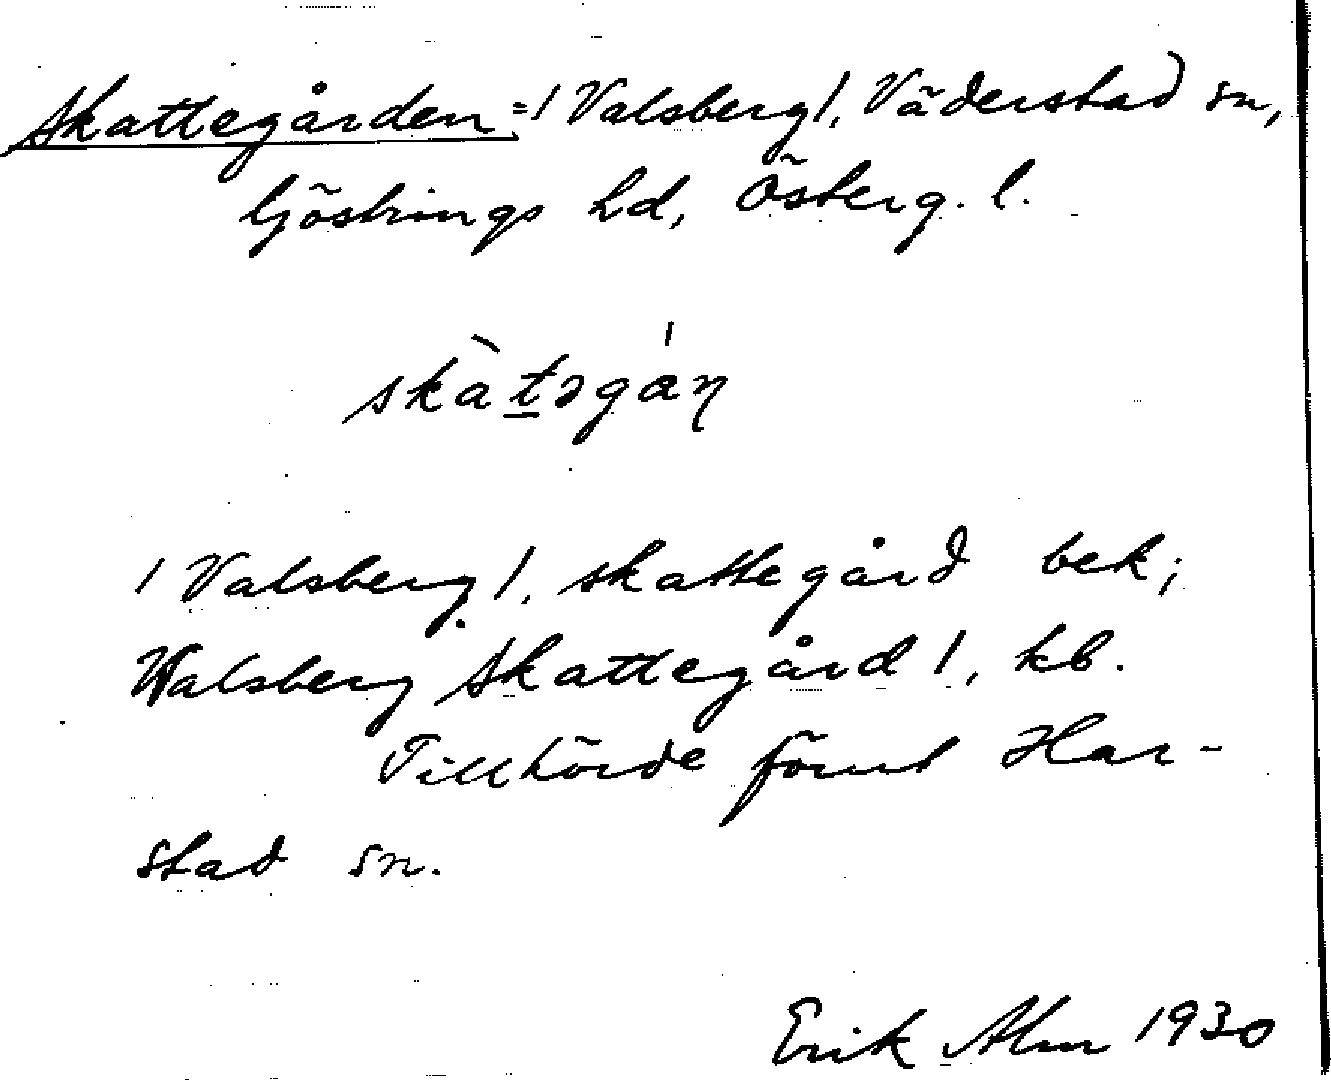 Skattegården =/Valsberg/, Väderstad sn,
Göstrings hd, Österg. l.
skàt̲əgáṇ
/Valsberg/, skattegård bek;
Walsberg Skattegård/, kb.
Tillhörde förut Har-
stad sn.
Erik Alm 1930